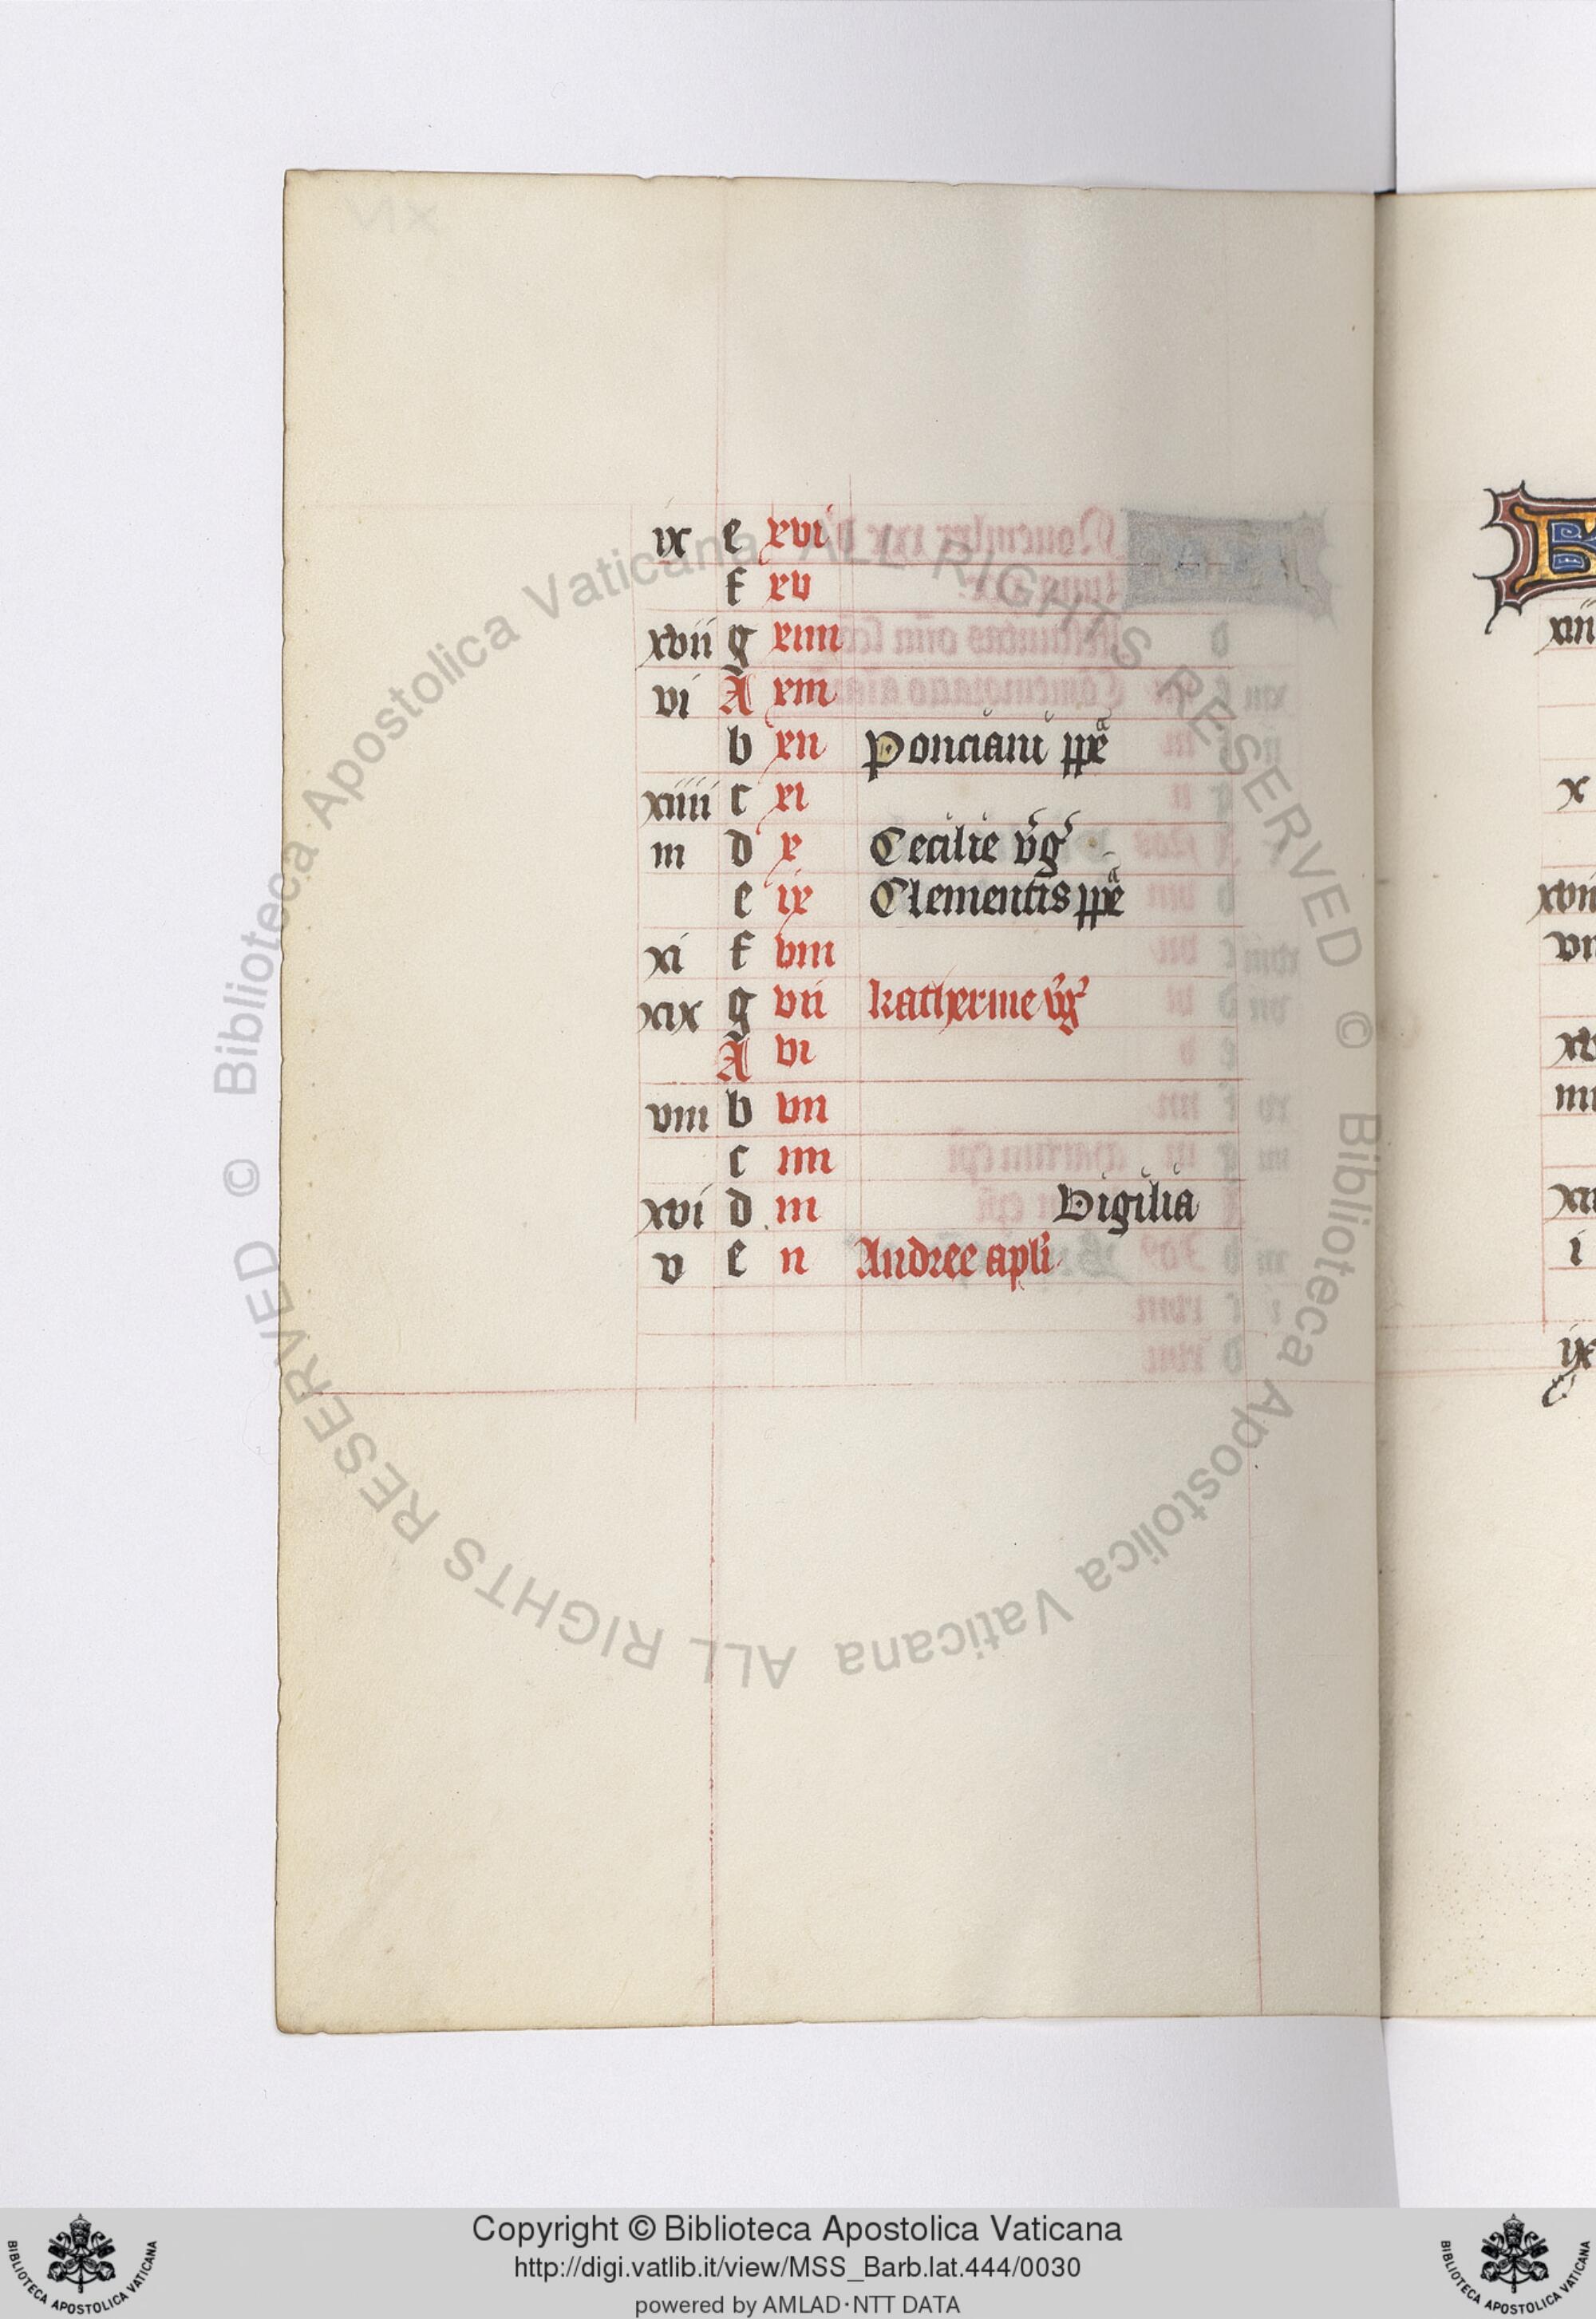 ix e xvi
f xv
xvii g xiiii
vi A xiii
b xii Ponciani ppe
xiiii c xi
iii d x Cecilie v̄g
e ix Clementis ppe
xi f viii
xix g vii katherine v̄g
A vi
viii b vii
c iiii
xvi d iii Vigilia
v e ii Andree apli
xiii
x
xvii
i
ix
© Biblioteca Apostolica Vaticana ALL RIGHTS RESERVED © Biblioteca Apostolica Vaticana ALL RIGHTS RESERVED
Copyright © Biblioteca Apostolica Vaticana
http://digi.vatlib.it/view/MSS_Barb.lat.444/0030
powered by AMLAD·NTT DATA
BIBLIOTECA APOSTOLICA VATICANA
BIBLIOTECA APOSTOLICA VATICANA